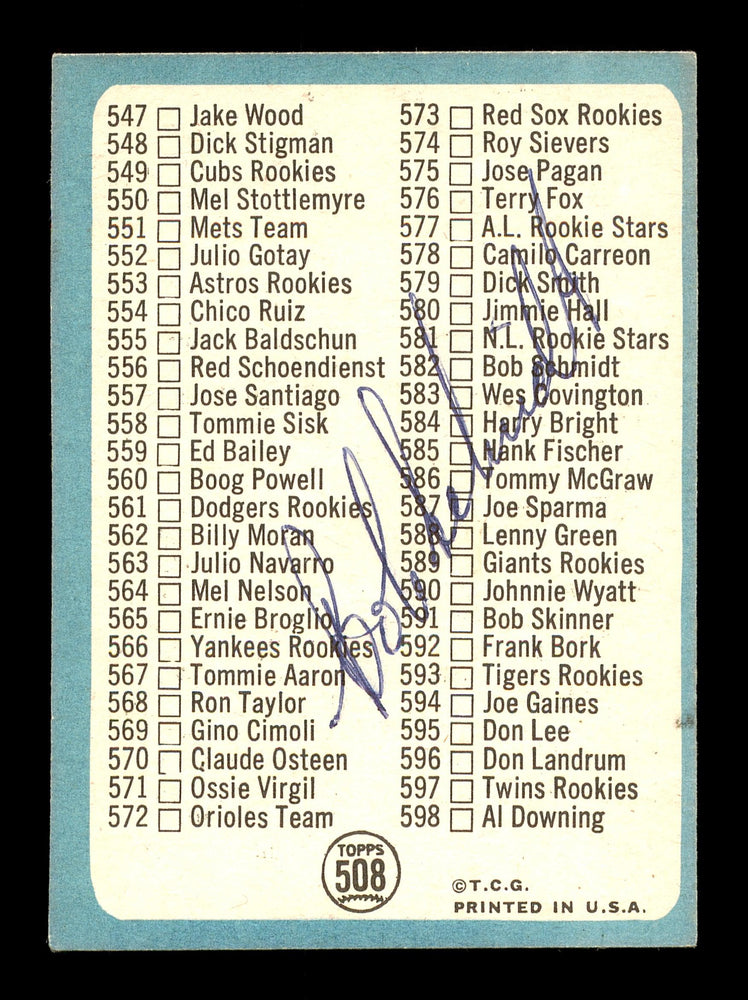 547 Jake Wood
548 Dick Stigman
549 Cubs Rookies
550 Mel Stottlemyre
551 Mets Team
552 Julio Gotay
553 Astros Rookies
554 Chico Ruiz
555 Jack Baldschun
556 Red Schoendienst
557 Jose Santiago
558 Tommie Sisk
559 Ed Bailey
560 Boog Powell
561 Dodgers Rookies
562 Billy Moran
563 Julio Navarro
564 Mel Nelson
565 Ernie Broglio
566 Yankees Rookies
567 Tommie Aaron
568 Ron Taylor
569 Gino Cimoli
570 Claude Osteen
571 Ossie Virgil
572 Orioles Team
573 Red Sox Rookies
574 Roy Sievers
575 Jose Pagan
576 Terry Fox
577 A.L. Rookie Stars
578 Camilo Carreon
579 Dick Smith
580 Jimmie Hall
581 N.L. Rookie Stars
582 Bob Schmidt
583 Wes Covington
584 Harry Bright
585 Hank Fischer
586 Tommy McGraw
587 Joe Sparma
588 Lenny Green
589 Giants Rookies
590 Johnnie Wyatt
591 Bob Skinner
592 Frank Bork
593 Tigers Rookies
594 Joe Gaines
595 Don Lee
596 Don Landrum
597 Twins Rookies
598 Al Downing
Bob Schmidt
TOPPS
508
© T.C.G.
PRINTED IN U.S.A.